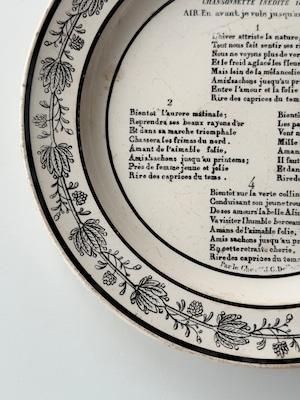 CHANSONNETTE INEDITE
AIR En avant, je vole jusqu'a
1
L'hiver attriste la nature,
Tout nous fait sentir ses ri
Nous ne voyons plus de ver
Et le froid a glacé les fleurs
Mais loin de la mélancoli
Amis sachons jusqu'au prin
Entre l'amour et la folie
Rire des caprices du tems.
2
Bientot l'aurore matinale;
Reprendra ses beaux rayons d'or
Et dans sa marche triomphale
Chassera les frimas du nord.
Amant de l'aimable folie,
Amis sachons jusqu'au printems;
Près de femme jeune et jolie
Rire des caprices du tems.
Bientôt
Les pa
Vont
Mille
Aman
Il faut
Et da
Rire
4
Bientôt sur la verte collin
Conduisant son jeune trou
De ses amours la belle Alin
Va visiter l'humble berceau
Amans de l'aimable folie,
Amis sachons jusqu'au pr
En cette retraite cherie,
Rire des caprices du tem
Par le Cher J.C.